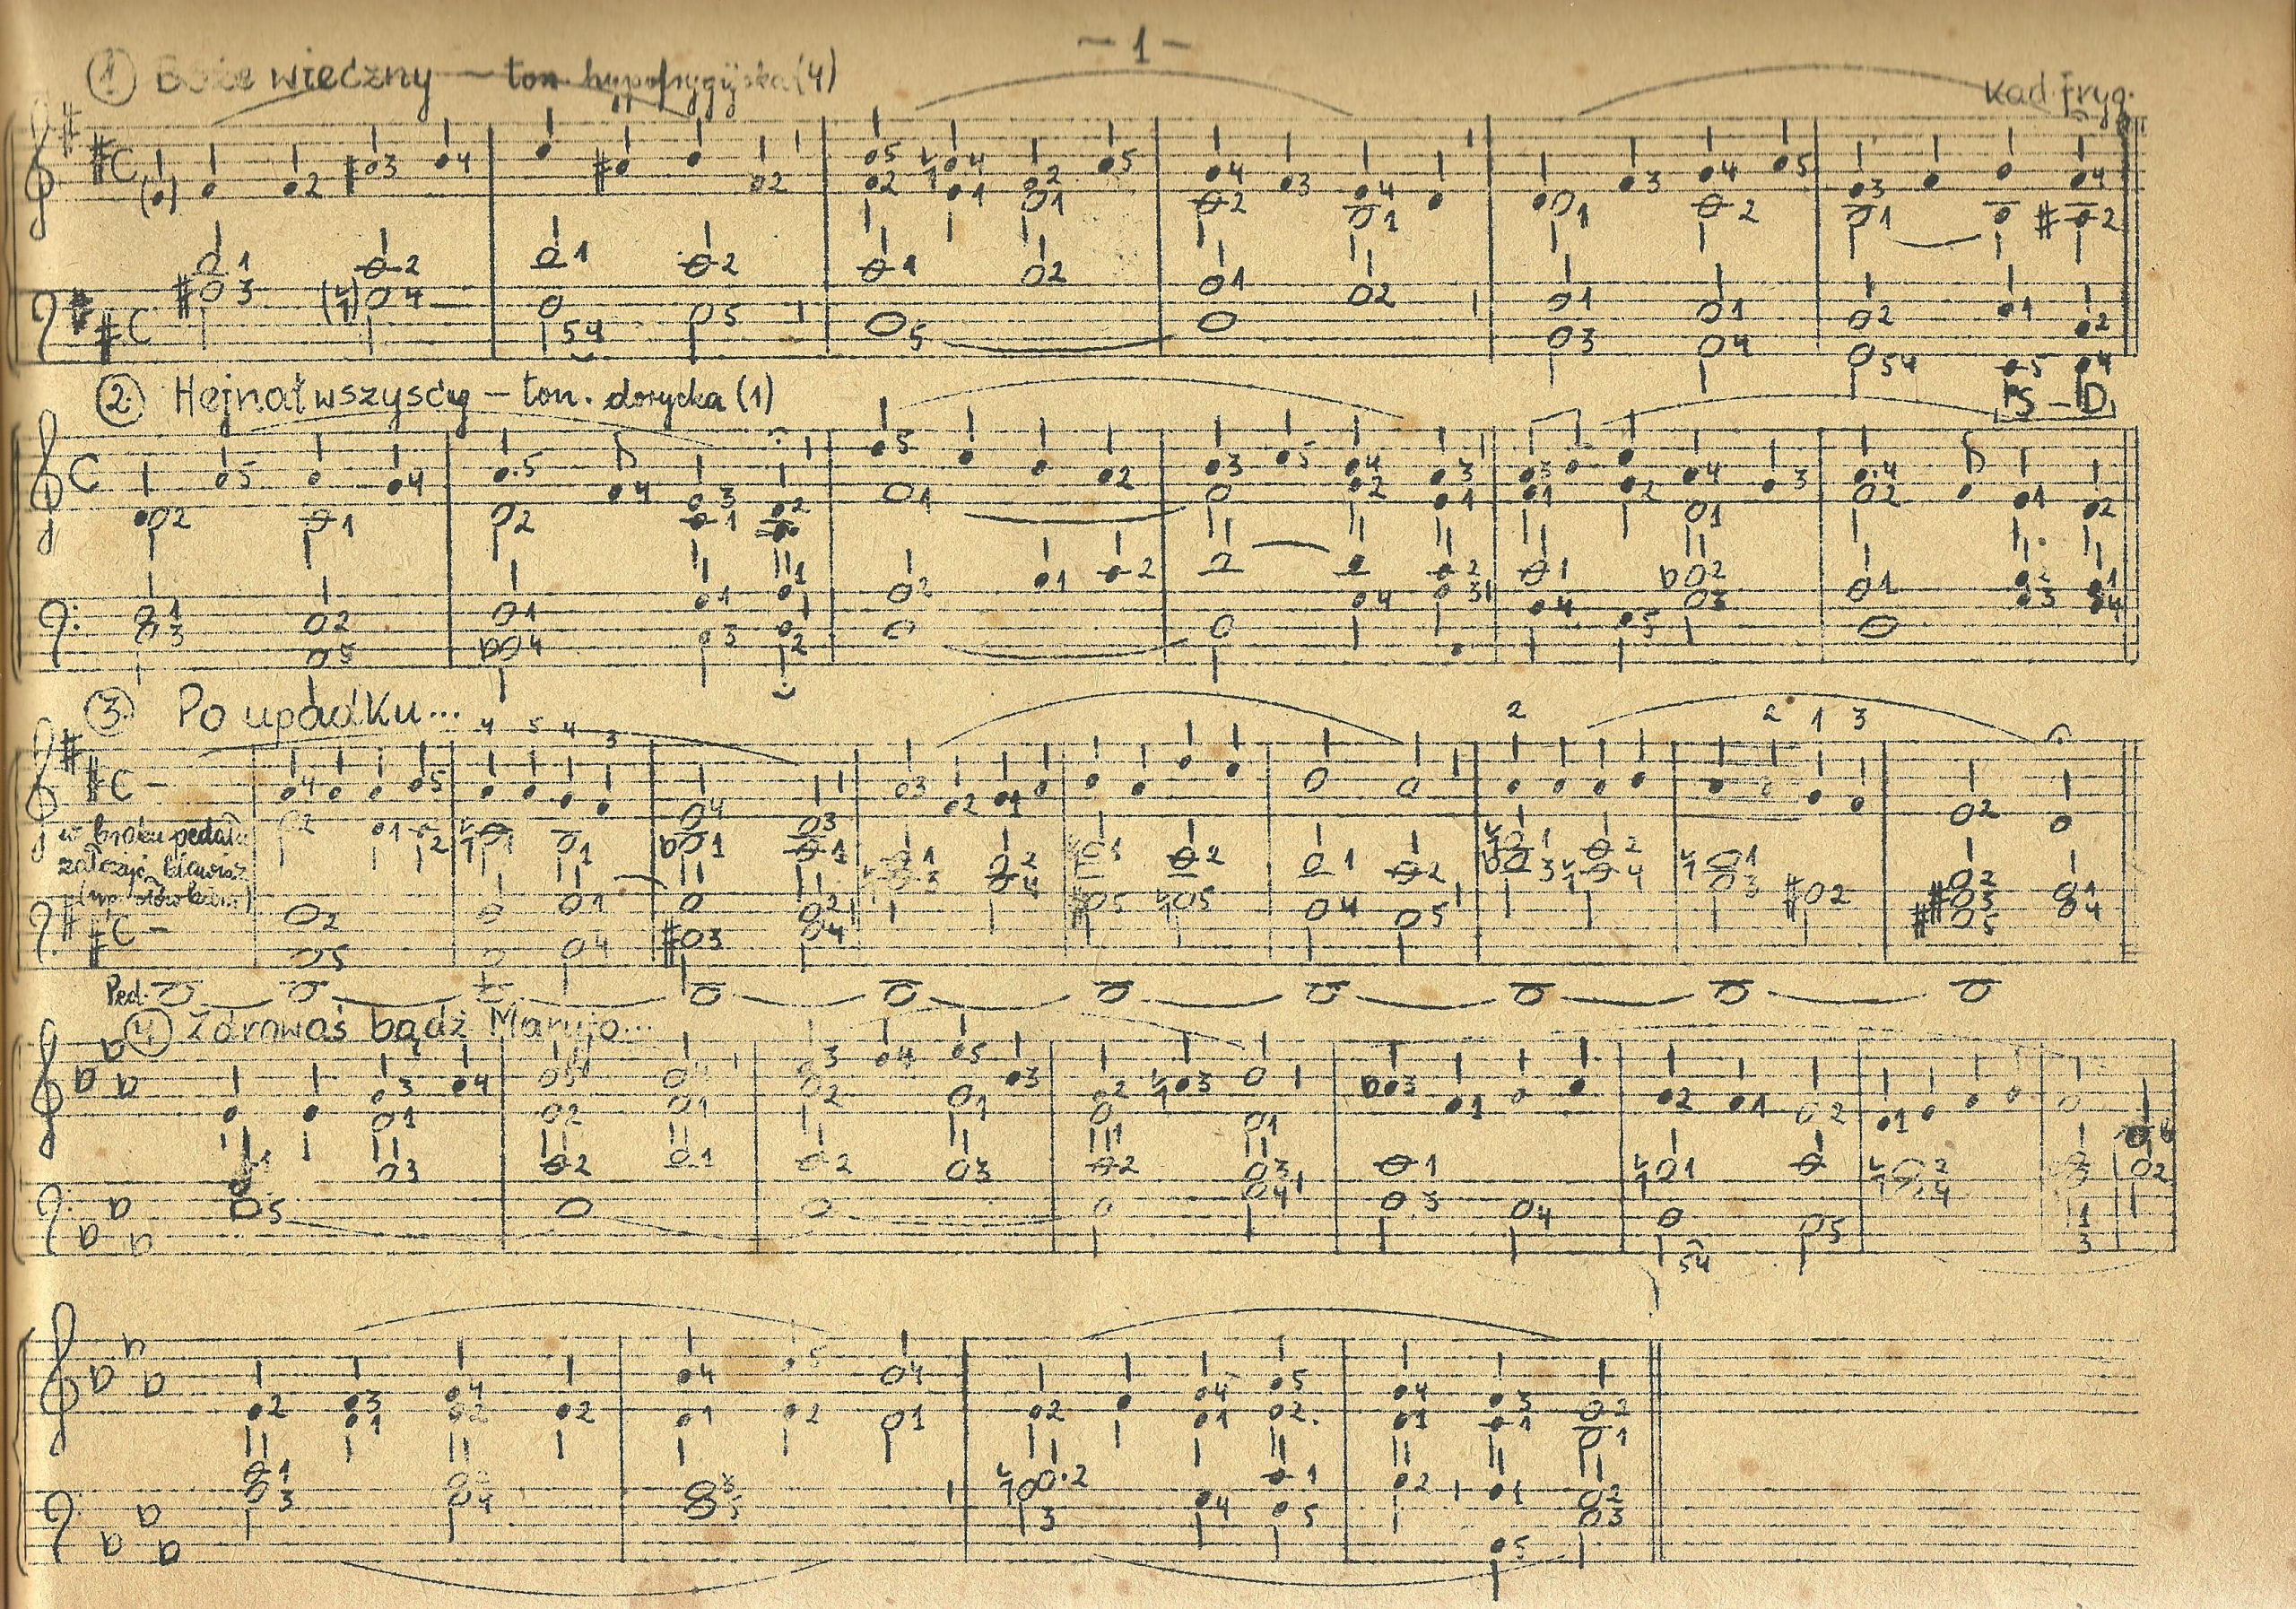 – 1 –
① Boże wieczny – ton. hypofrygijska (4)
Kad. fryg.
S – D
② Hejnał wszyscy – ton. dorycka (1)
③ Po upadku...
w braku pedału
załączyć klawisz
Ped.
④ Zdrowaś bądź Maryjo...